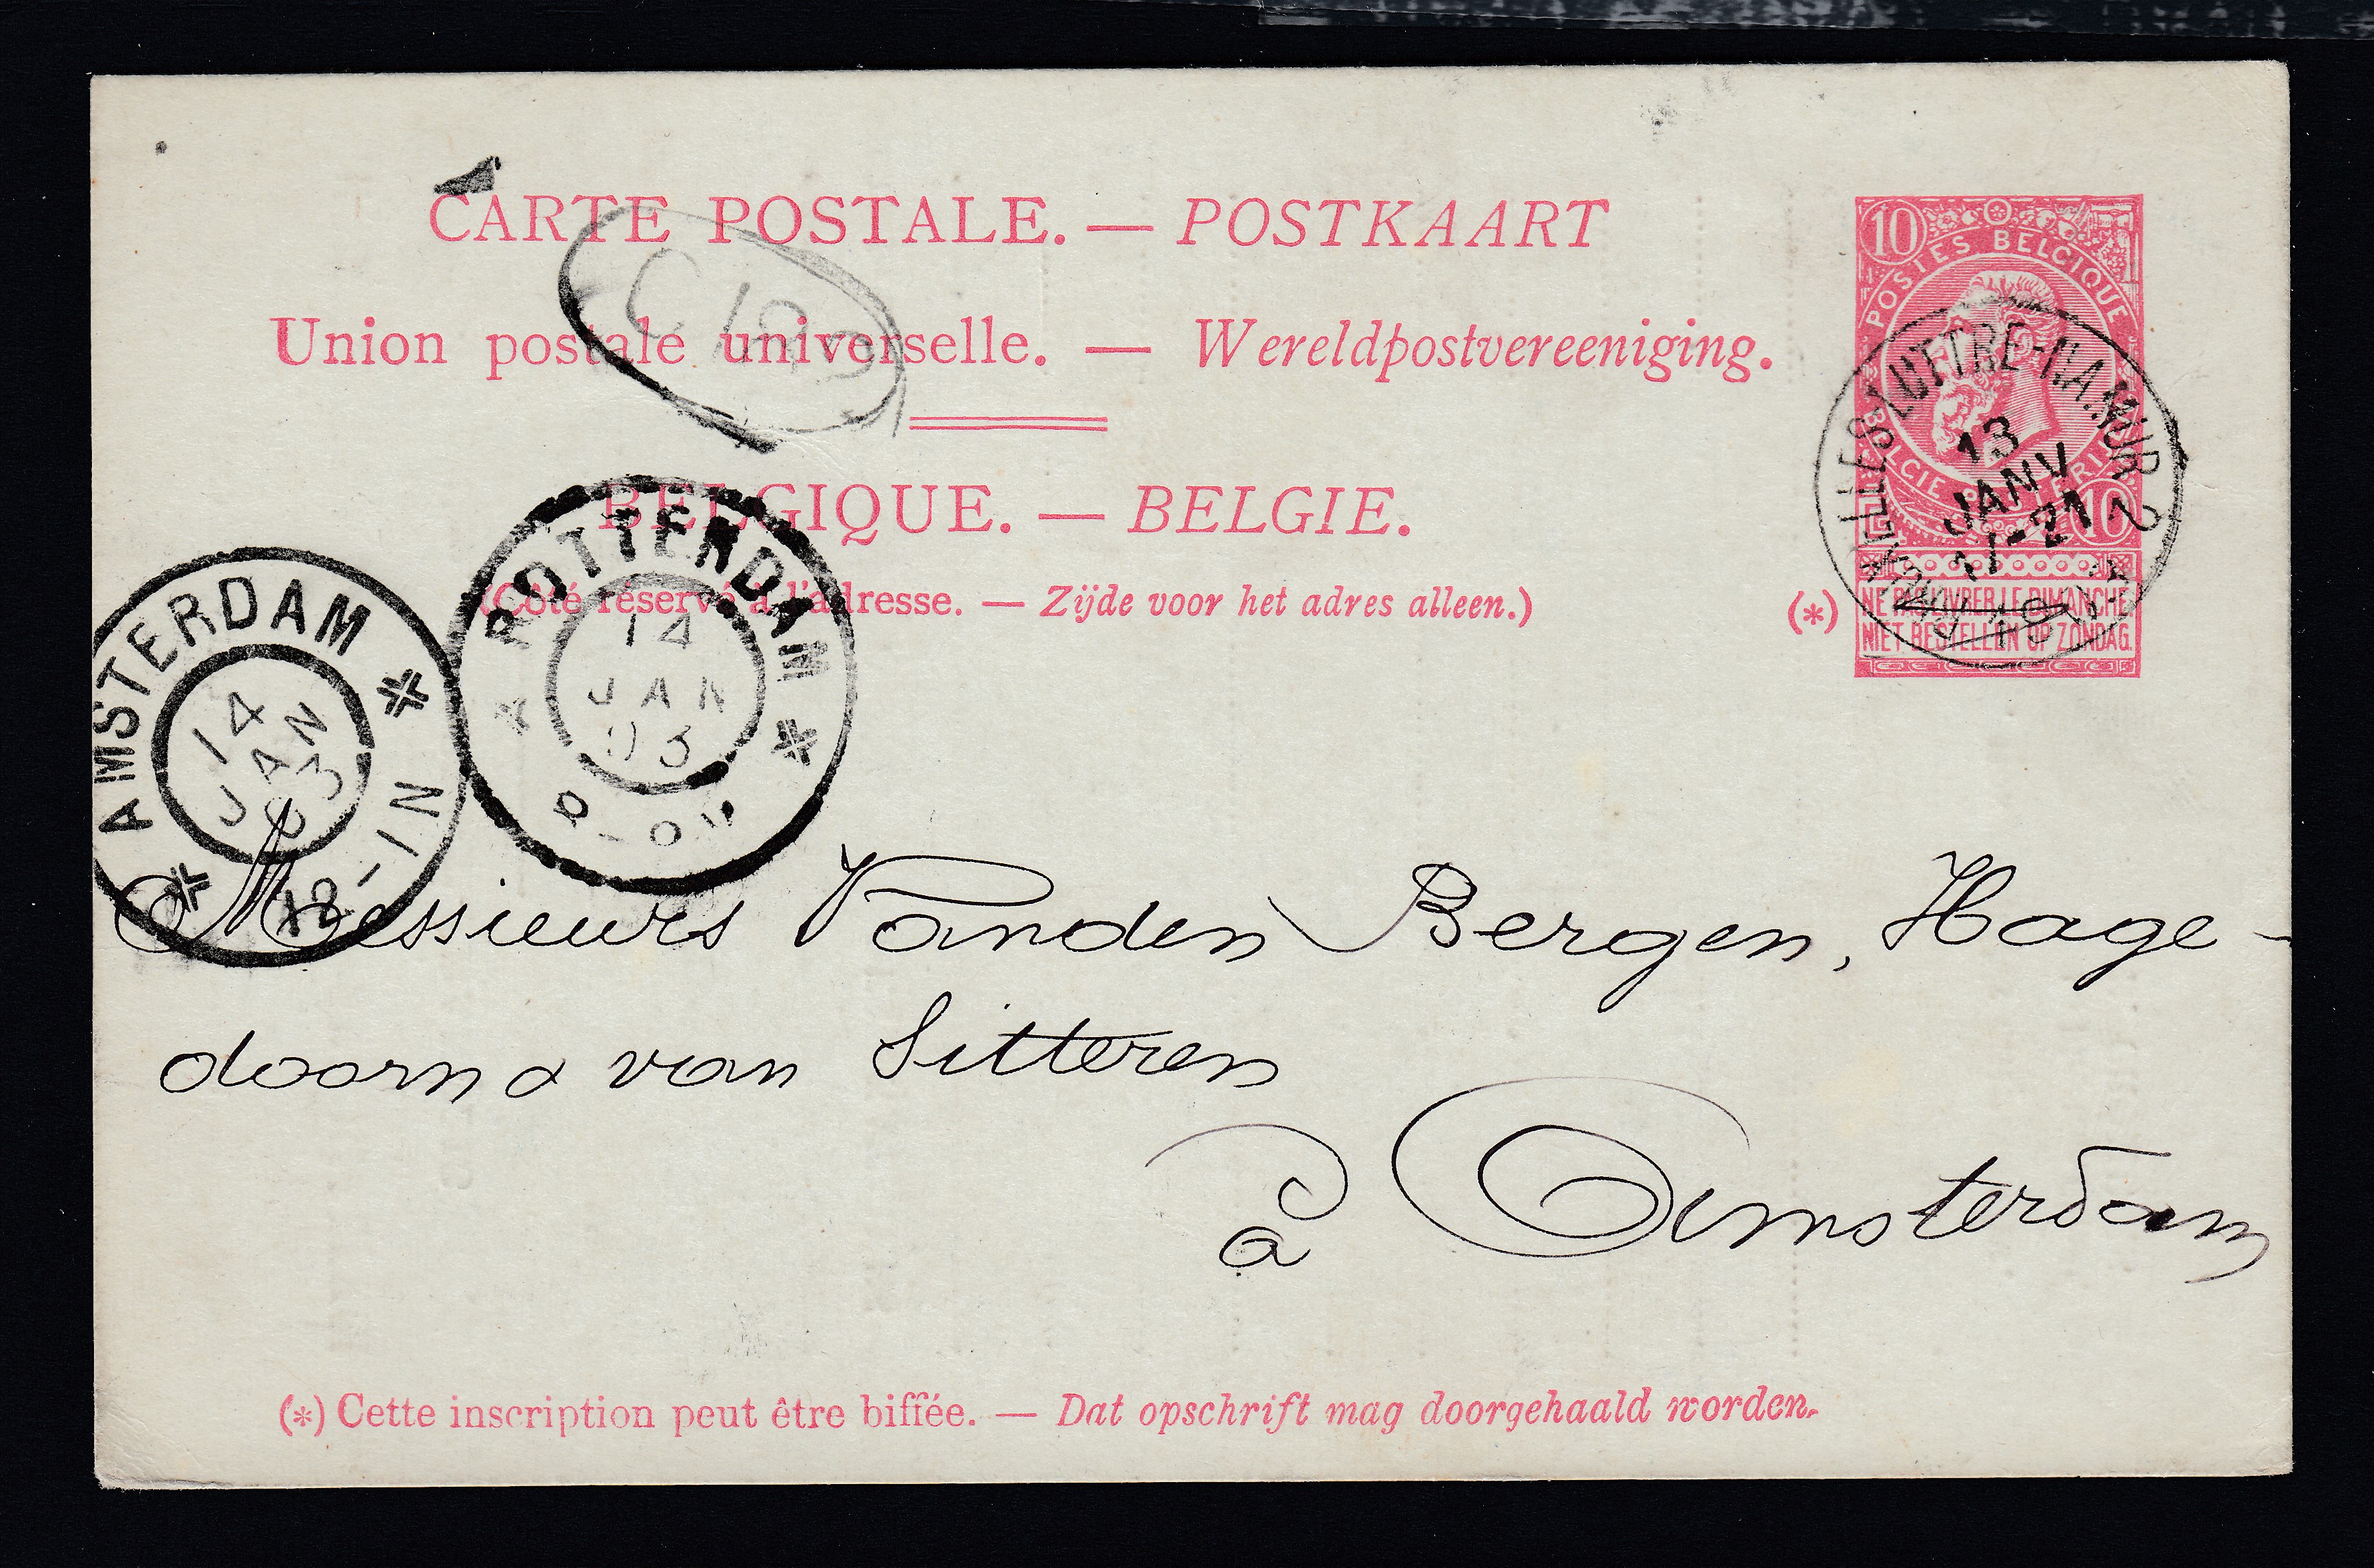 CARTE POSTALE. — POSTKAART
Union postale universelle. — Wereldpostvereeniging.
BELGIQUE. — BELGIE.
(Côté réservé à l'adresse. — Zijde voor het adres alleen.)
(*)
10
POSTES BELGIQUE
BELGIE POSTERIJEN
10
NE PAS LIVRER LE DIMANCHE
NIET BESTELLEN OP ZONDAG.
LUTTRE-NAMUR 2
13
JANV
17-21
ROTTERDAM
14
JAN
03
AMSTERDAM
14
JAN
03
12-1N
Messieurs Vanden Bergen, Hage-
doorn & van Sitteren
à Amsterdam
(*) Cette inscription peut être biffée. — Dat opschrift mag doorgehaald worden.